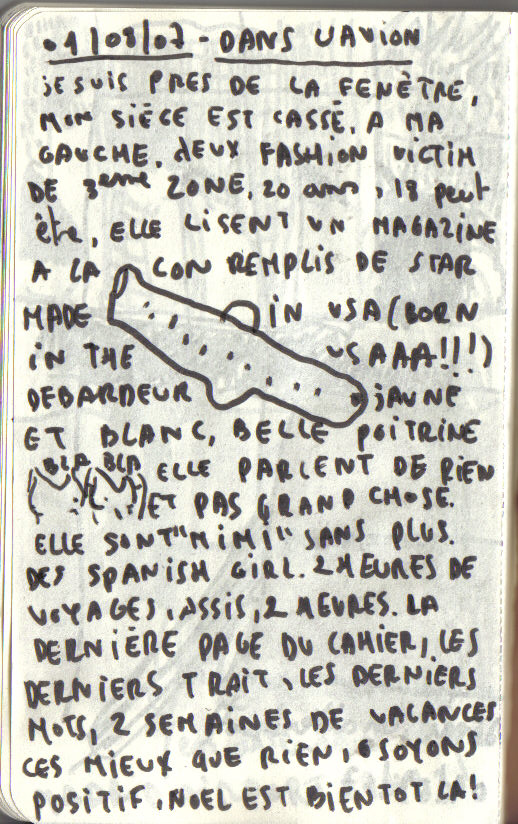 01/08/07 - DANS L'AVION
JE SUIS PRES DE LA FENÊTRE,
MON SIÈGE EST CASSÉ. A MA
GAUCHE, DEUX FASHION VICTIM
DE 3eme ZONE, 20 ans, 18 peut
être, ELLE LISENT UN MAGAZINE
A LA CON REMPLIS DE STAR
MADE IN USA (BORN
IN THE USAAA!!!)
DEBARDEUR JAUNE
ET BLANC, BELLE POITRINE
BLA BLA ELLE PARLENT DE RIEN
ET PAS GRAND CHOSE.
ELLE SONT "MIMI" SANS PLUS.
DES SPANISH GIRL. 2 HEURES DE
VOYAGES, ASSIS, 2 HEURES. LA
DERNIÈRE PAGE DU CAHIER, LES
DERNIERS TRAIT, LES DERNIERS
MOTS, 2 SEMAINES DE VACANCES
CES MIEUX QUE RIEN, SOYONS
POSITIF, NOEL EST BIENTOT LA!